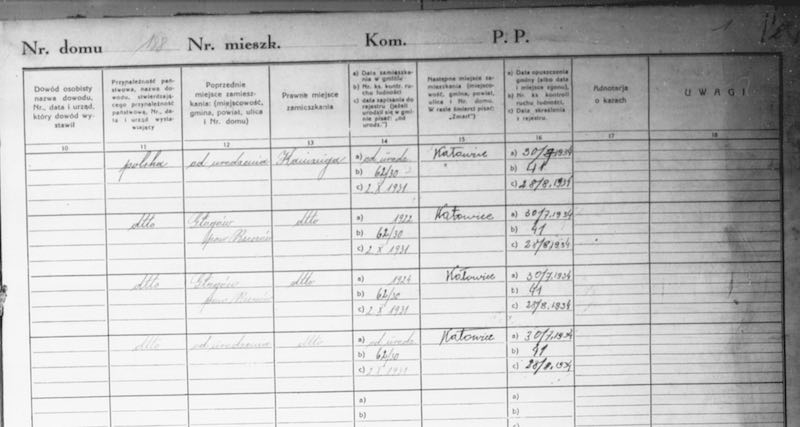 Nr. domu 138 Nr. mieszk. Kom. P. P.
Dowód osobisty
nazwa dowodu,
Nr., data i urząd.
który dowód wy-
stawił
Przynależność pań-
stwowa, nazwa do-
wodu, stwierdzają-
cego przynależność
państwową, Nr., da-
ta i urząd wysta-
wiający
Poprzednie
miejsce zamiesz-
kania: (miejscowość,
gmina, powiat, ulica
i Nr. domu)
Prawne miejsce
zamieszkania
a) Data zamieszka-
nia w gminie
b) Nr. ks. kontr. ru-
chu ludności
c) data zapisania do
rejestru (jeżeli
urodził się w gmi-
nie pisać: „od
urodz.")
Następne miejsce za-
mieszkania (miejsco-
wość, gmina, powiat,
ulica i Nr. domu.
W razie śmierci pisać:
„Zmarł")
a) Data opuszczenia
gminy (albo data
i miejsce zgonu),
b) Nr. ks. kontroli
ruchu ludności,
c) Data skreślenia
z rejestru.
Adnotacja
o karach
UWAGI
10 11 12 13 14 15 16 17 18
polska od urodzenia a) od urodz Katowice a) 30/7.1934
b) 62/30 b) 41
c) 2 X 1931 c) 28/8.1934
dtto Głogów dtto a) 1922 Katowice a) 30/7.1934
pow b) 62/30 b) 41
c) 2 X 1931 c) 28/8.1934
dtto Głogów dtto a) 1924 Katowice a) 30/7.1934
pow b) 62/30 b) 41
c) 2 X 1931 c) 28/8.1934
dtto od urodzenia dtto a) od urodz Katowice a) 30/7.1934
b) 62/30 b) 41
c) 2 X 1931 c) 28/8.1934
a) a)
b) b)